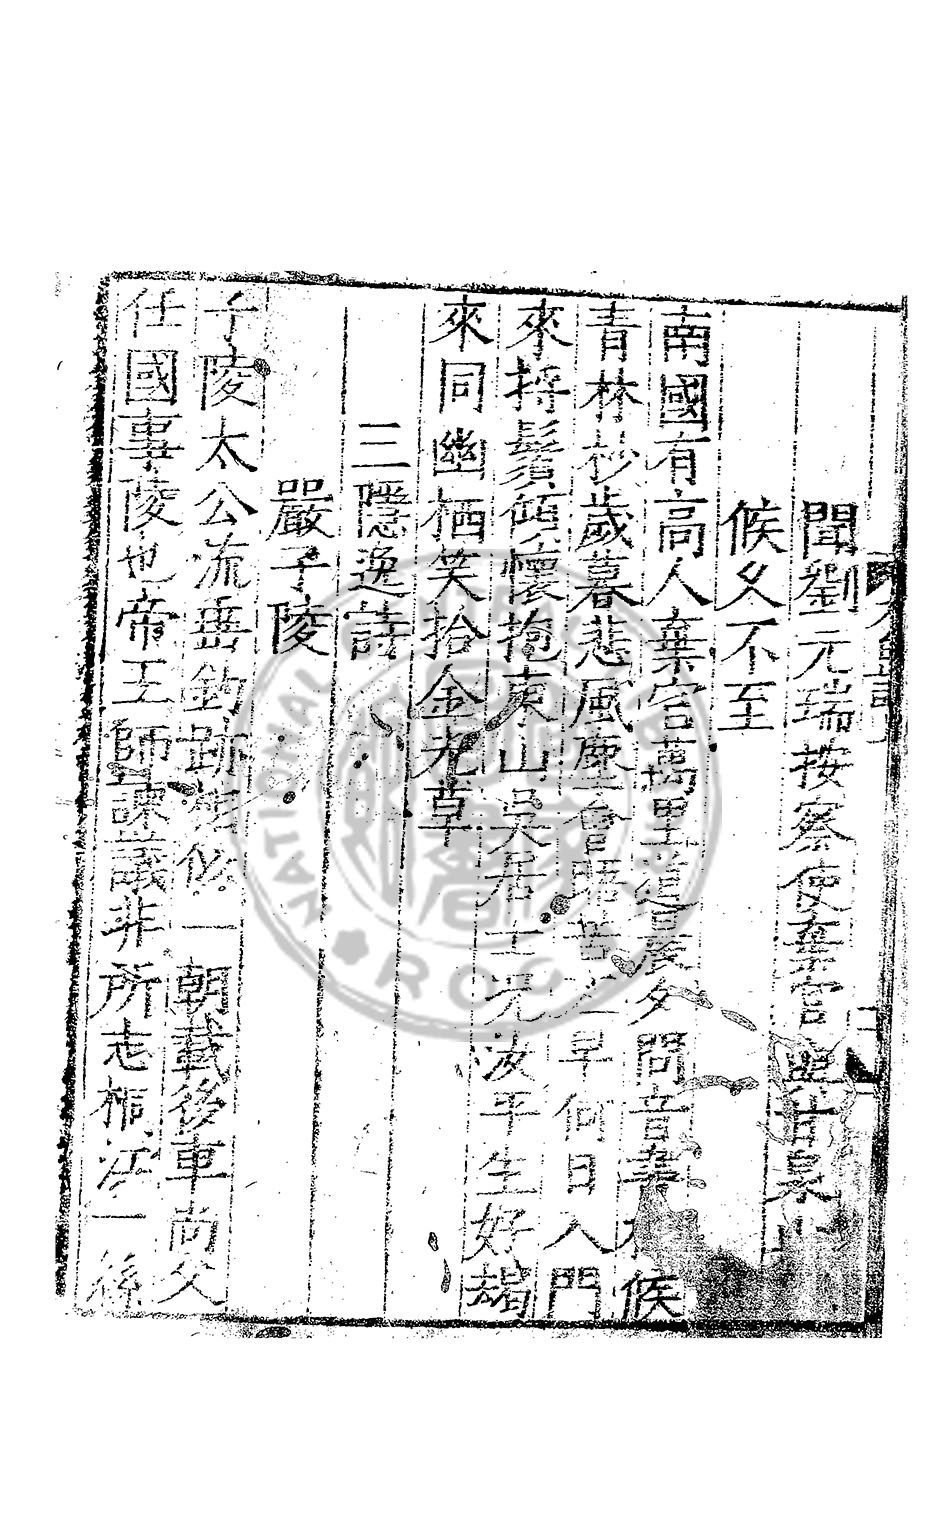 聞劉元瑞按察使棄官與甘泉山
候久不至
南國有高人棄官萬里道晨夕問音候
青林杪歲暮悲風塵會晤苦不早何日入門
來捋鬚傾懷抱東山吳居士況汝平生好朅
來同幽栖笑拾金光草
三隱逸詩
嚴子陵
子陵太公流垂鈎跡一朝載後車尚父
任國事陵也帝王師諫議非所志桐江一絲
NATIONAL CENTRAL LIBRARY
R.O.C.